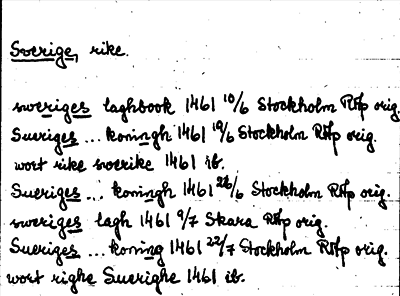 Sverige, rike.
sweriges laghbook 1461 10/6 Stockholm RAp orig.
Sueriges ... koningh 1461 19/6 Stockholm RAp orig.
wort rike swerike 1461 ib.
Sueriges ... koningh 1461 26/6 Stockholm RAp orig.
sweriges lagh 1461 9/7 Skara RAp orig.
Sueriges ... koning 1461 22/7 Stockholm RAp orig.
wort righe Suerighe 1461 ib.